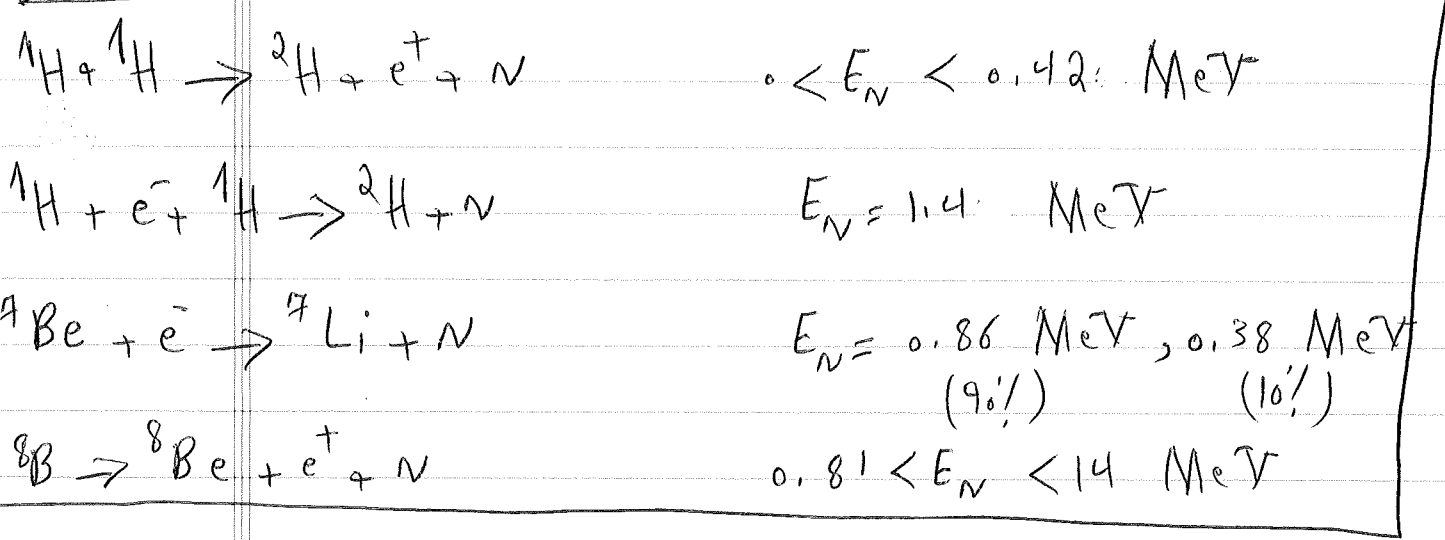 ¹H + ¹H → ²H + e⁺ + ν 0 < E_ν < 0.42 MeV
¹H + e⁻ + ¹H → ²H + ν E_ν = 1.4 MeV
⁷Be + e⁻ → ⁷Li + ν E_ν = 0.86 MeV, 0.38 MeV
(90%) (10%)
⁸B → ⁸Be + e⁺ + ν 0.81 < E_ν < 14 MeV